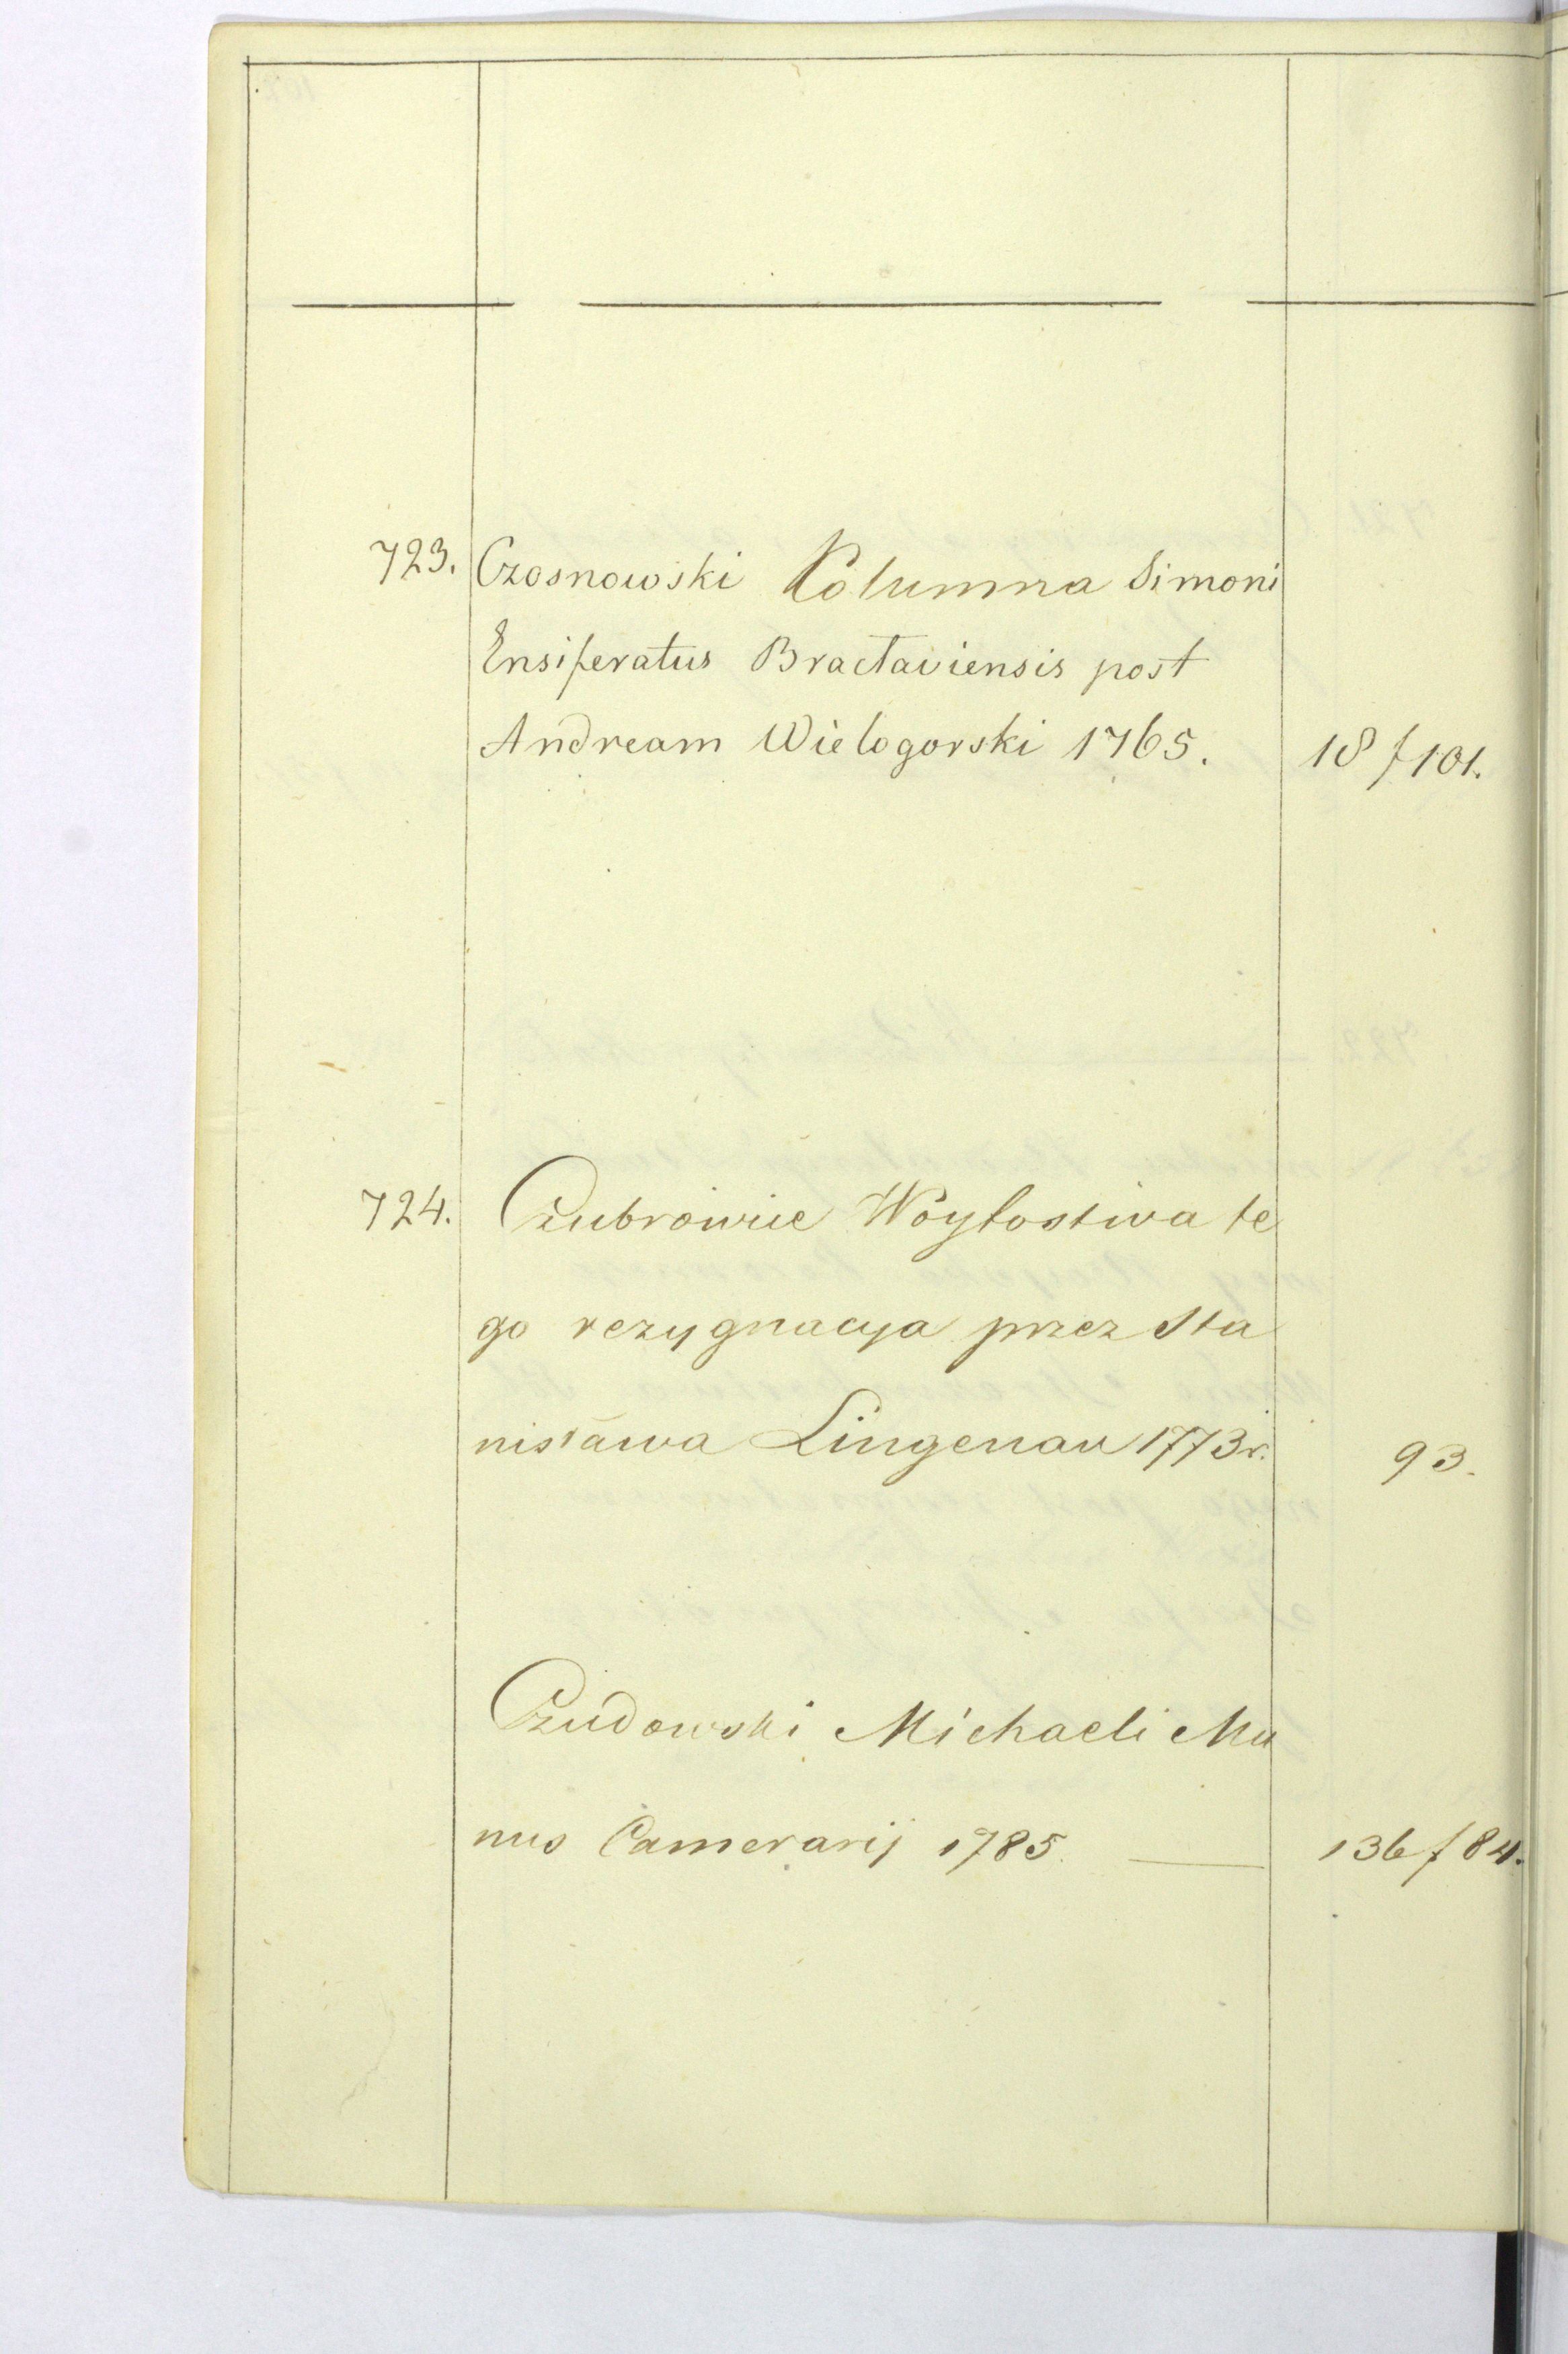 723. Czosnowski Kolumna Simoni
Ensiferatus Bractaviensis post
Andream Wielogorski 1765. 18 f 101.
724. Czubrowice Woytostwa te
go rezygnacya przez Sta
nisława Lingenau 1773 r. 93.
Czudowski Michaeli Mu
nus Camerarij 1785. 136 f 84.